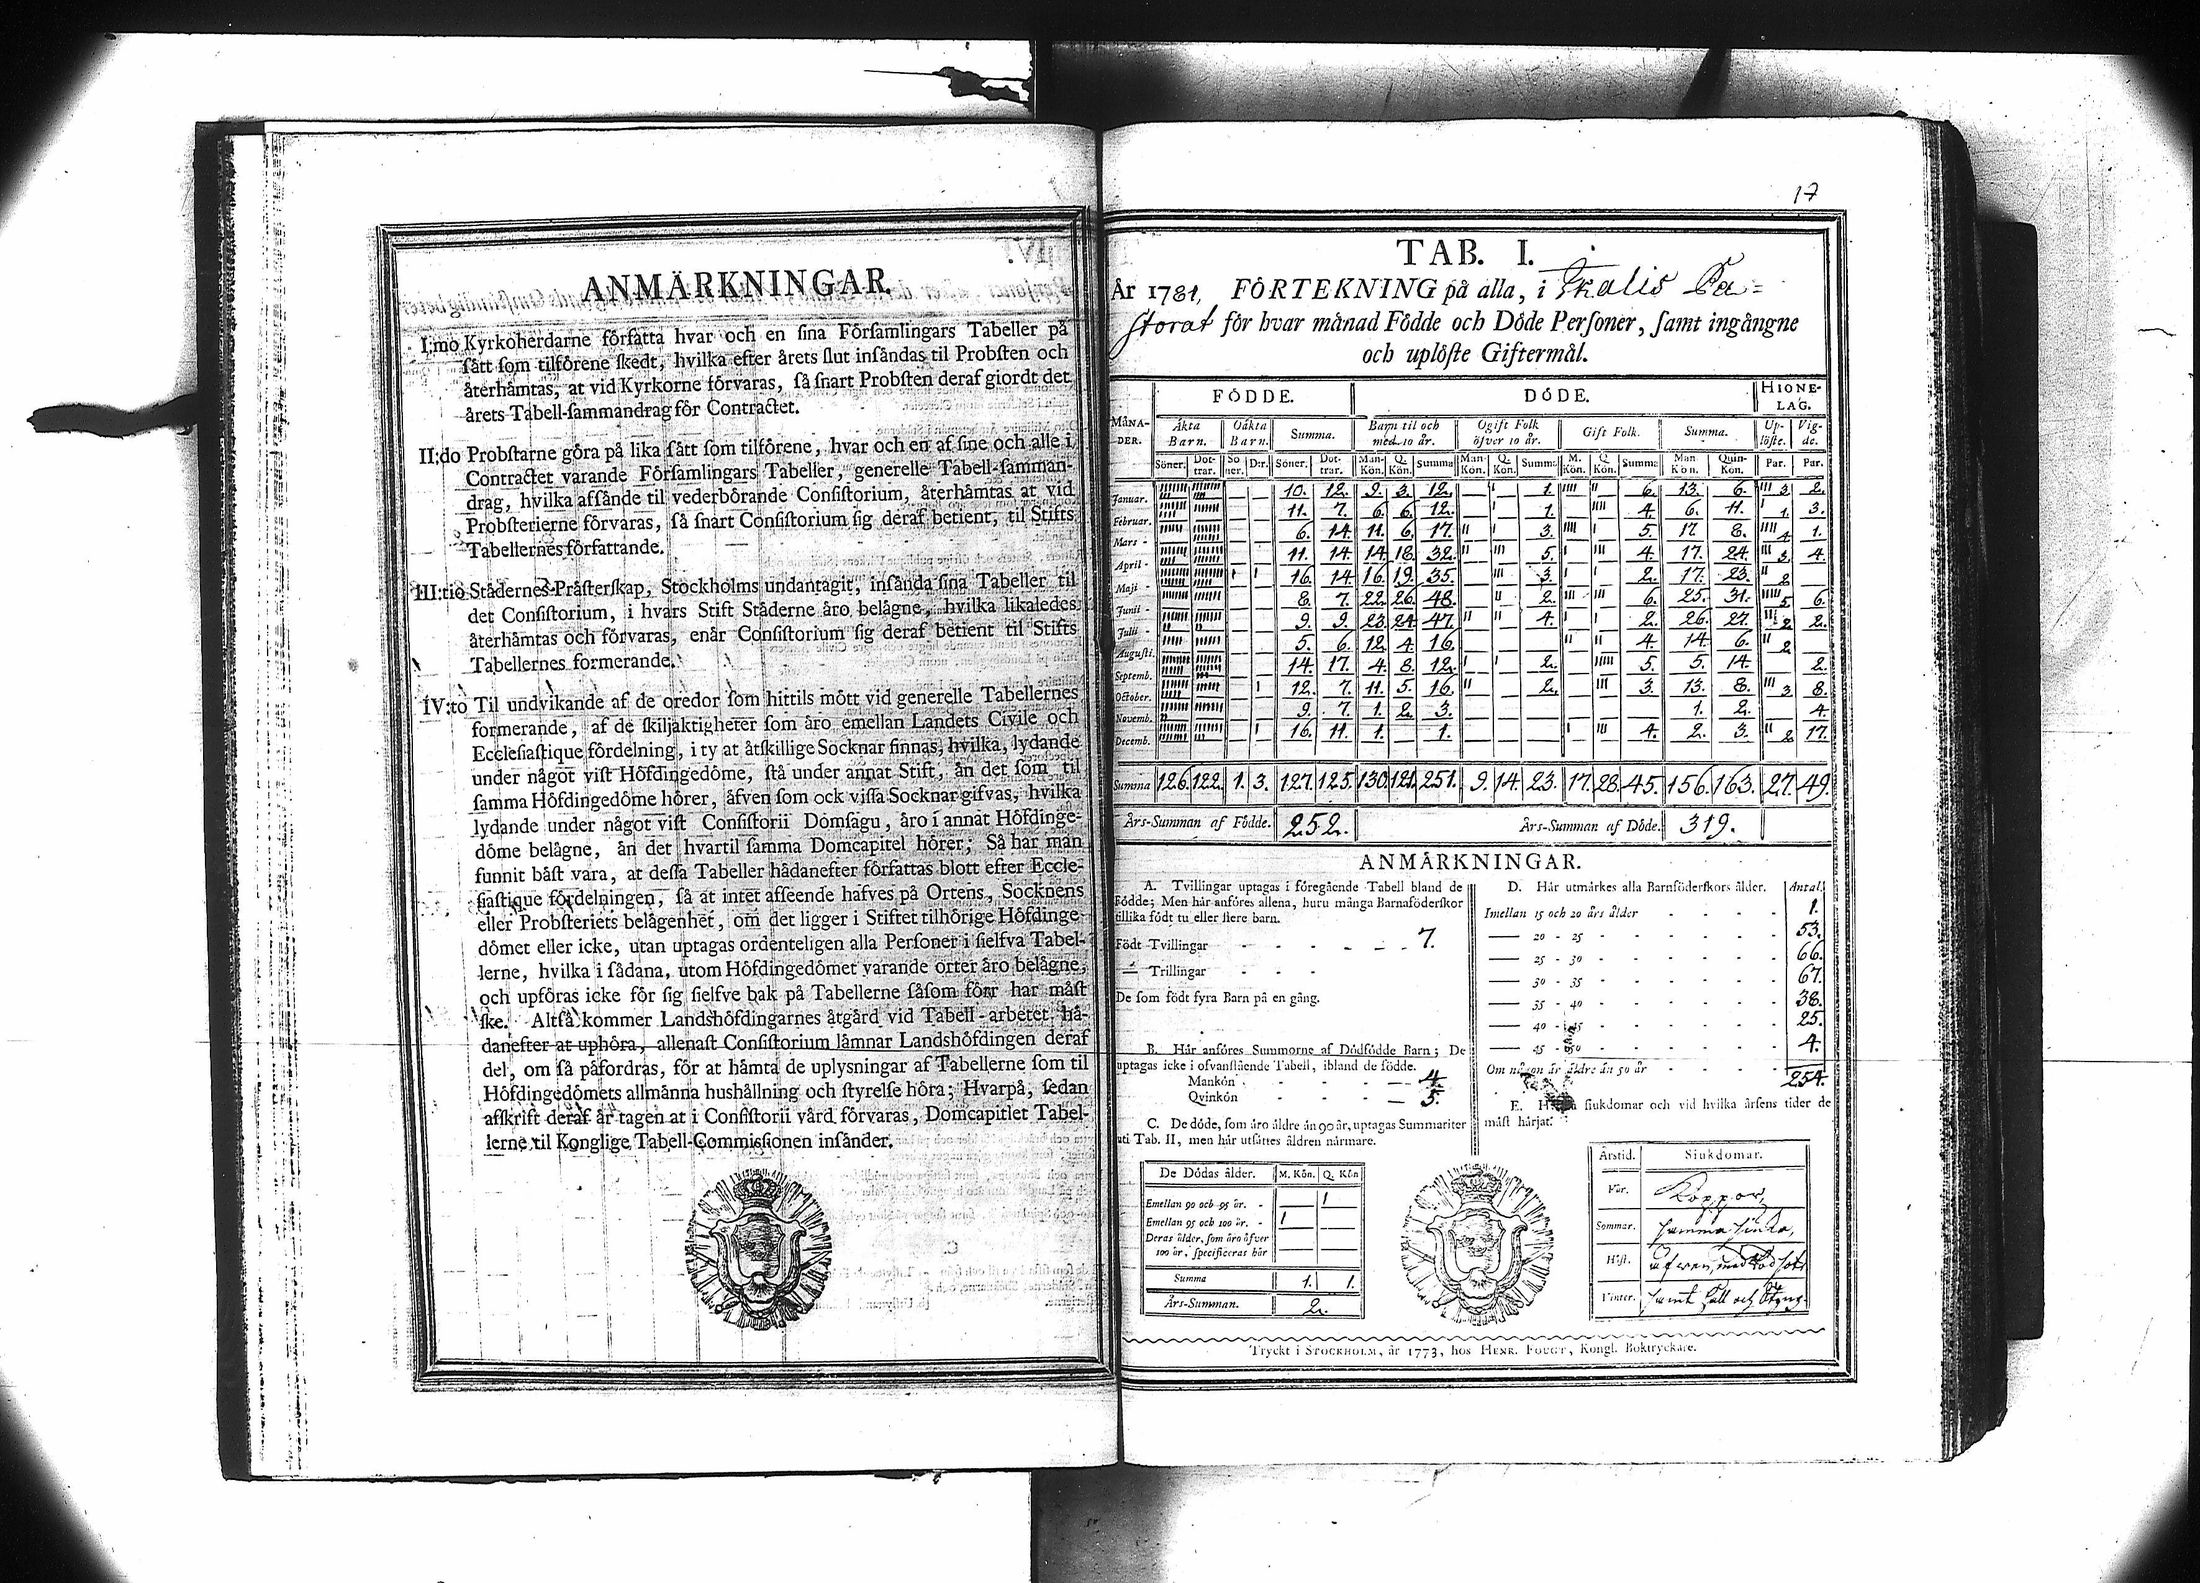 ANMÄRKNINGAR.
I;mo Kyrkoherdarne författa hvar och en sina Församlingars Tabeller på
sätt som tilförene skedt, hvilka efter årets slut insåndas til Probsten och
återhämtas, at vid Kyrkorne förvaras, så snart Probsten deraf giordt det
årets Tabell-sammandrag för Contractet.
II;do Probstarne göra på lika sått som tilförene, hvar och en af sine och alle i
Contractet varande Församlingars Tabeller, generelle Tabell-samman-
drag, hvilka afsånde til vederbörande Consistorium, återhåmtas at vid
Probsterierne förvaras, så snart Consistorium sig deraf betient, til Stifts
Tabellernes författande.
III:tio Städernes Prästerskap, Stockholms undantagit, insånda sina Tabeller til
det Consistorium, i hvars Stift Ståderne åro belågne, hvilka likaledes
återhåmtas och förvaras, enår Consistorium sig deraf betient til Stifts
Tabellernes formerande.
IV:to Til undvikande af de oredor som hittils mött vid generelle Tabellernes
formerande, af de skiljaktigheter som äro emellan Landets Civile och
Ecclesiastique fördelning, i ty at åtskillige Socknar finnas, hvilka, lydande
under något vist Höfdingedöme, stå under annat Stift, än det som til
samma Höfdingedöme hörer, åfven som ock vissa Socknar gifvas, hvilka
lydande under något vist Consistorii Domsagu, åro i annat Höfdinge-
döme belågne, ån det hvartil samma Domcapitel hörer; Så har man
funnit båst vara, at dessa Tabeller hådanefter författas blott efter Eccle-
siastique fördelningen, så at intet afseende hafves på Ortens, Socknens
eller Probsteriets belågenhet, om det ligger i Stiftet tilhörige Höfdinge-
dömet eller icke, utan uptagas ordenteligen alla Personer i sielfva Tabel-
lerne, hvilka i sådana, utom Höfdingedömet varande orter åro belågne,
och upföras icke för sig sielfve bak på Tabellerne såsom förr har måst
ske. Altså kommer Landshöfdingarnes åtgård vid Tabell-arbetet hå-
danefter at uphöra, allenast Consistorium lämnar Landshöfdingen deraf
del, om så påfordras, för at håmta de uplysningar af Tabellerne som til
Höfdingedömets allmånna hushållning och styrelse höra; Hvarpå, sedan
afskrift deraf år tagen at i Consistorii vård förvaras, Domcapitlet Tabel-
lerne til Konglige Tabell-Commissionen insånder.
17
TAB. I.
År 1781, FÖRTEKNING på alla, i Ikalis Pa=
storat för hvar månad Födde och Döde Personer, samt ingångne
och uplöste Giftermål.
MÅNA-DER. FÖDDE. DÖDE. HIONE-LAG.
Äkta Barn. Oäkta Barn. Summa. Barn til och med 10 år. Ogift Folk öfver 10 år. Gift Folk. Summa. Up-löste. Vig-de.
Söner. Dot-trar. Sö ner. D:r. Söner. Dot-trar. Man-Kön. Q. Kön. Summa Man-Kön. Q. Kön. Summa M. Kön. Q Kön. Summa Man Kön. Quin-Kön. Par. Par.
Januar. 10. 12. 9. 3. 12. 1. 6. 13. 6. 3. 2.
Februar. 11. 7. 6. 6. 12. 1. 4. 6. 11. 1. 3.
Mars - 6. 14. 11. 6. 17. 3. 5. 17. 8. 4 1.
April - 11. 14. 14. 18. 32. 5. 4. 17. 24. 3. 4.
Maji - 16. 14. 16. 19. 35. 3. 2. 17. 23. 2
Junii - 8. 7. 22. 26. 48. 2. 6. 25. 31. 5. 6.
Julii - 9. 9. 23. 24. 47. 4. 2. 26. 27. 2 2.
Augusti. 5. 6. 12. 4. 16. 4. 14. 6. 2
Septemb. 14. 17. 4. 8. 12. 2. 5. 5. 14. 2.
October. 12. 7. 11. 5. 16. 2. 3. 13. 8. 3 8.
Novemb. 9. 7. 1. 2. 3. 1. 2. 4.
Decemb. 16. 11. 1. 1. 4. 2. 3. 2 17.
Summa 126. 122. 1. 3. 127. 125. 130. 121. 251. 9. 14. 23. 17. 28. 45. 156. 163. 27. 49.
Års-Summan af Födde. 252. Års-Summan af Döde. 319.
ANMÄRKNINGAR.
A. Tvillingar uptagas i föregående Tabell bland de
Födde; Men här anföres allena, huru många Barnaföderskor
tillika födt tu eller flere barn.
Födt Tvillingar 7.
— Trillingar
De som födt fyra Barn på en gång.
B. Här anföres Summorne af Dödfödde Barn; De
uptagas icke i ofvanstående Tabell, ibland de födde.
Mankön 4
Qvinkön 5.
C. De döde, som äro äldre än 90 år, uptagas Summariter
uti Tab. II, men här utsättes åldren närmare.
De Dödas ålder. M. Kön. Q. Kön
Emellan 90 och 95 år. - 1
Emellan 95 och 100 år. - 1
Deras ålder, som äro öfver
100 år, specificeras här
Summa 1. 1.
Års-Summan. 2.
D. Här utmärkes alla Barnföderskors ålder. Antal.
Emellan 15 och 20 års ålder 1.
— 20 - 25 53.
— 25 - 30 66.
— 30 - 35 67.
— 35 - 40 38.
— 40 - 45 25.
— 45 - 50 4.
Om någon är äldre än 50 år
254.
E. siukdomar och vid hvilka årsens tider de
måst härjat.
Årstid. Siukdomar.
Vår. Koppor,
Sommar. samma siuka,
Höst. äfwen, med Rödsot
Vinter. samt Håll och Styng.
Tryckt i STOCKHOLM, år 1773, hos HENR. FOUGT, Kongl. Boktryckare.